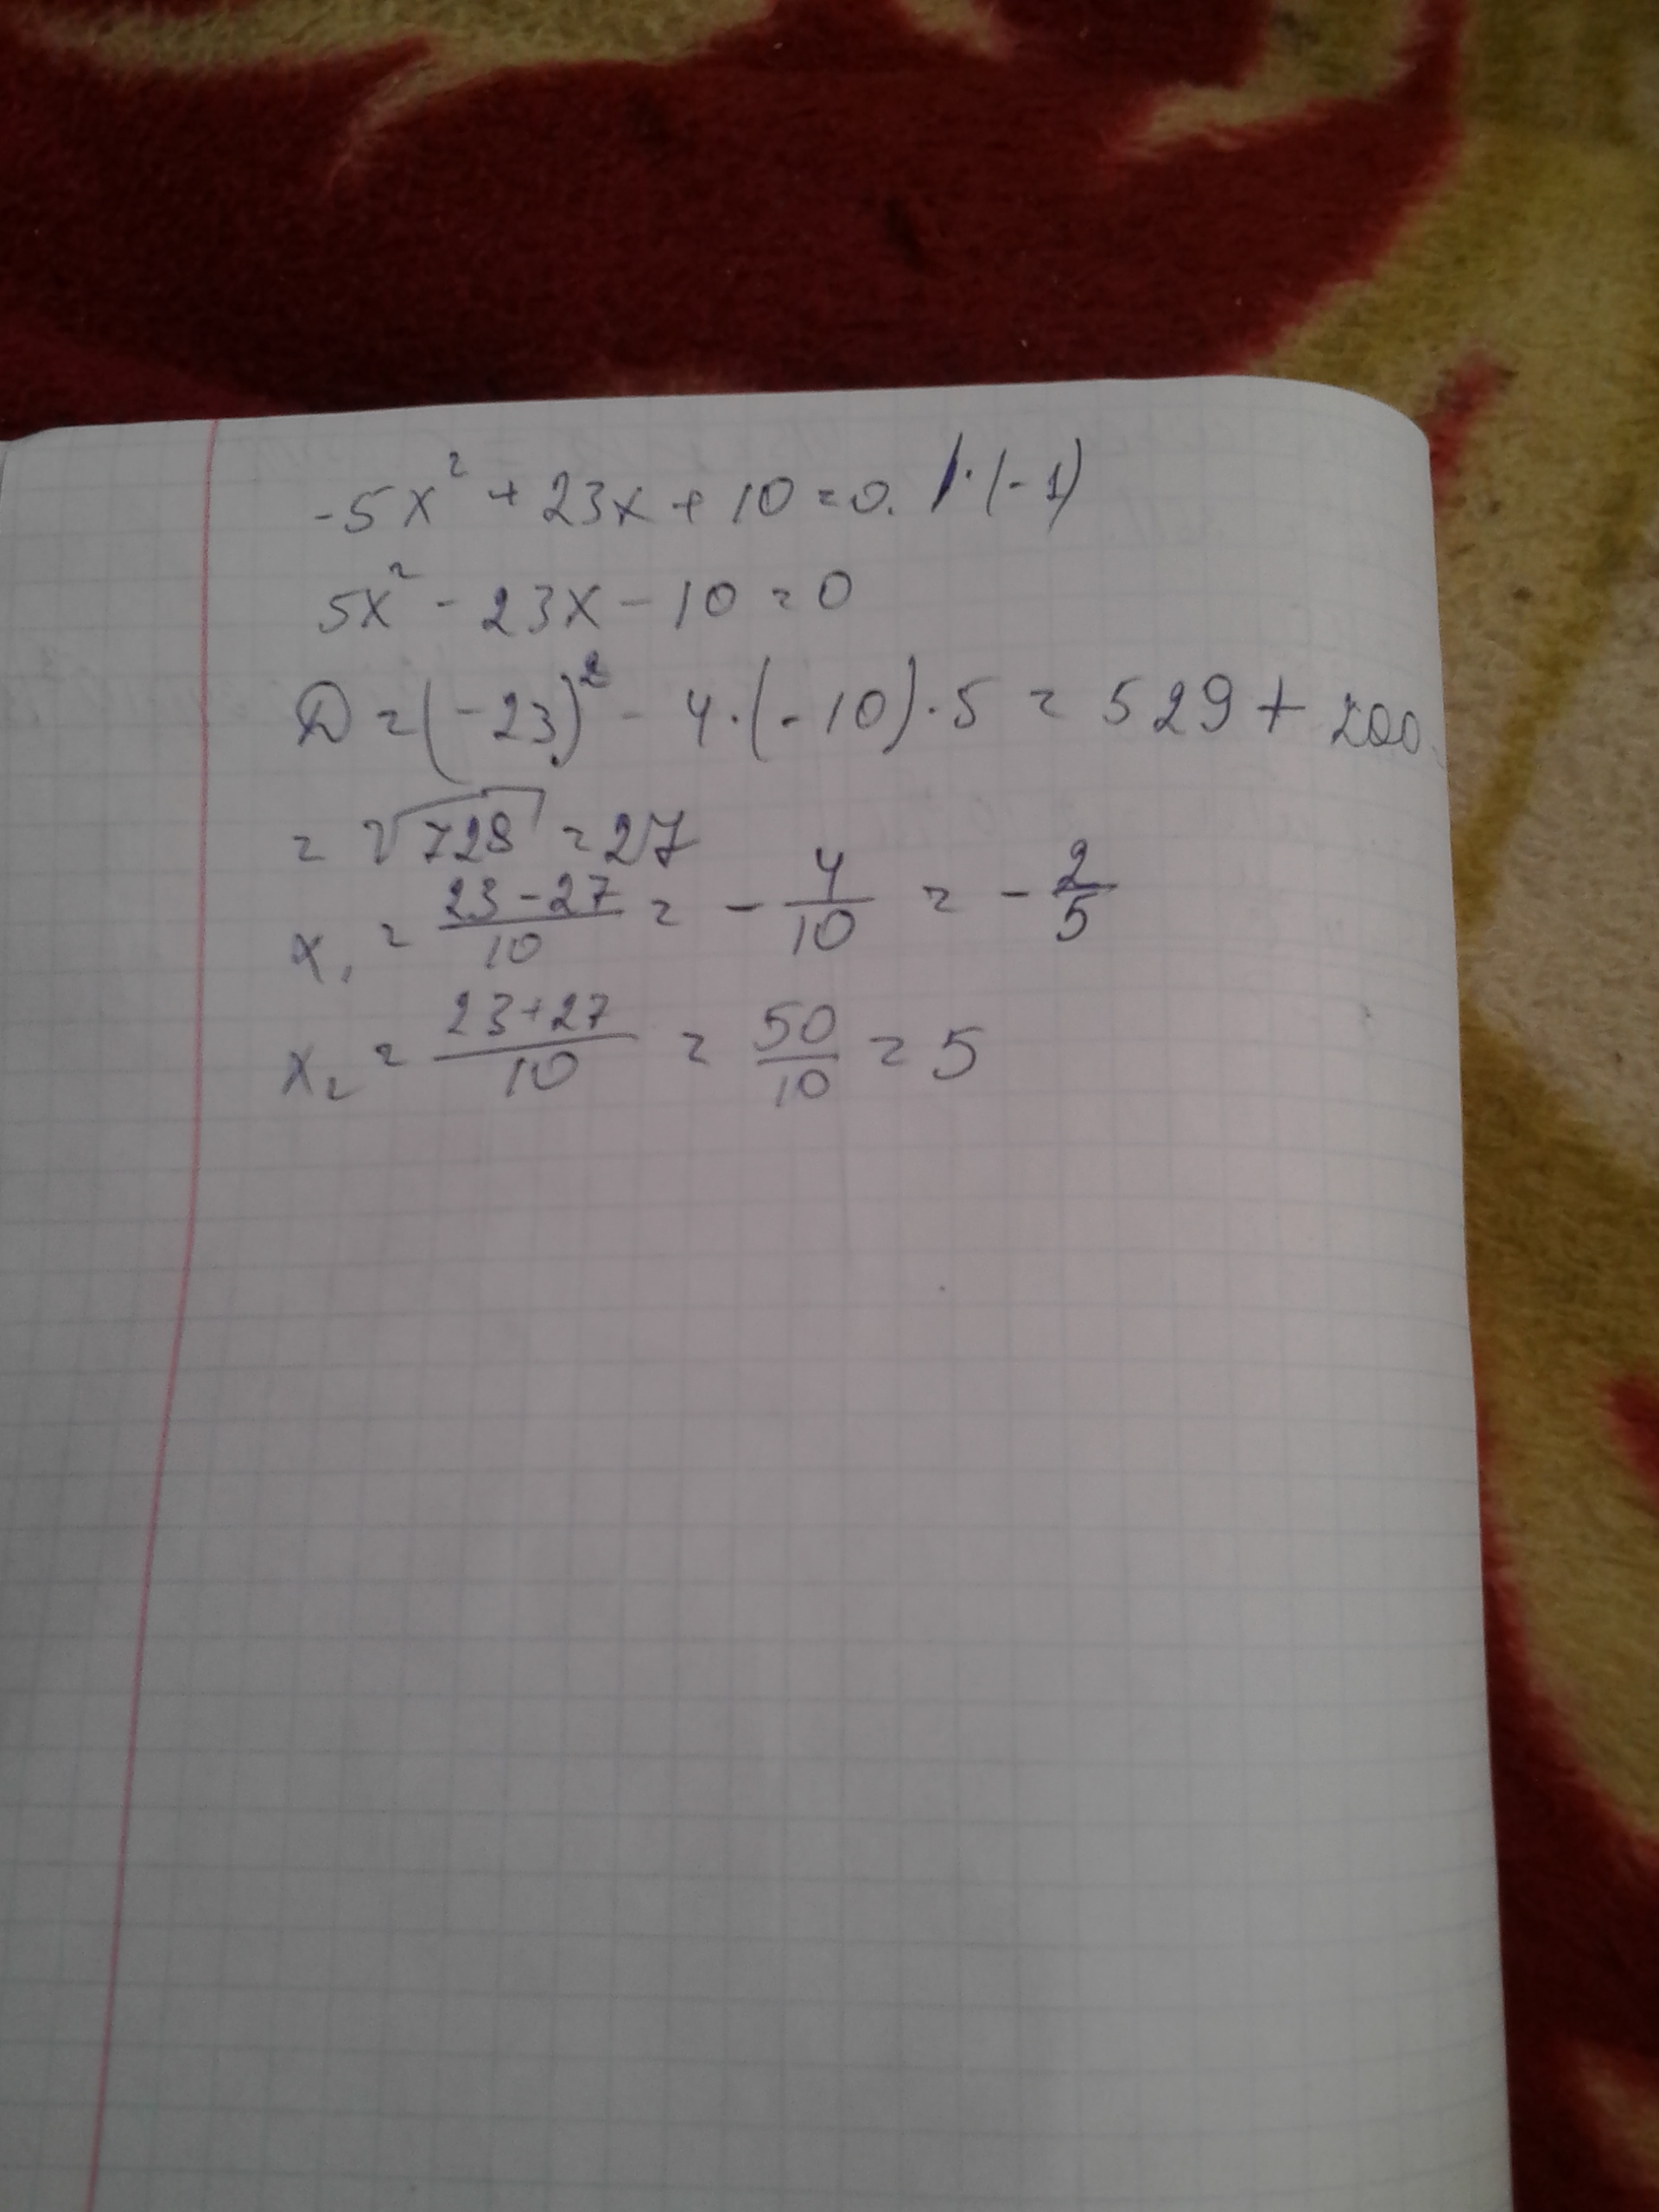 -5x² + 23x + 10 = 0. /·(-1)
5x² - 23x - 10 = 0
D = (-23)² - 4·(-10)·5 = 529 + 200
= √729 = 27
x₁ = (23-27)/10 = -4/10 = -2/5
x₂ = (23+27)/10 = 50/10 = 5